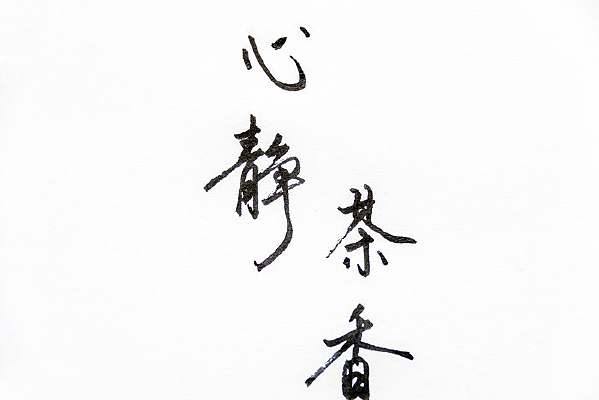 心静
茶香